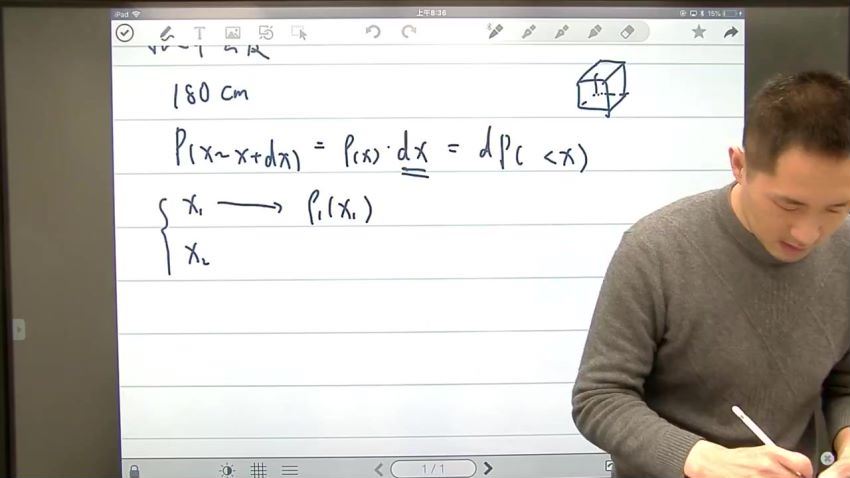 iPad 上午8:36 15%
T
180 cm
P(x~x+dx) = ρ(x)·dx = dP( <x)
x₁ → ρ₁(x₁)
x₂
1/1